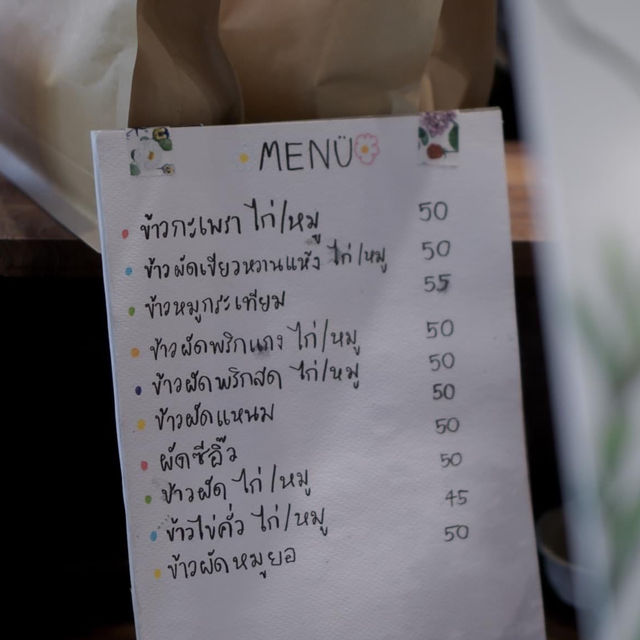 MENÜ
ข้าวกะเพรา ไก่/หมู 50
ข้าวผัดเขียวหวานแห้ง ไก่/หมู 50
ข้าวหมูกระเทียม 55
ข้าวผัดพริกแกง ไก่/หมู 50
ข้าวผัดพริกสด ไก่/หมู 50
ข้าวผัดแหนม 50
ผัดซีอิ๊ว 50
ข้าวผัด ไก่/หมู 50
ข้าวไข่คั่ว ไก่/หมู 45
ข้าวผัดหมูยอ 50